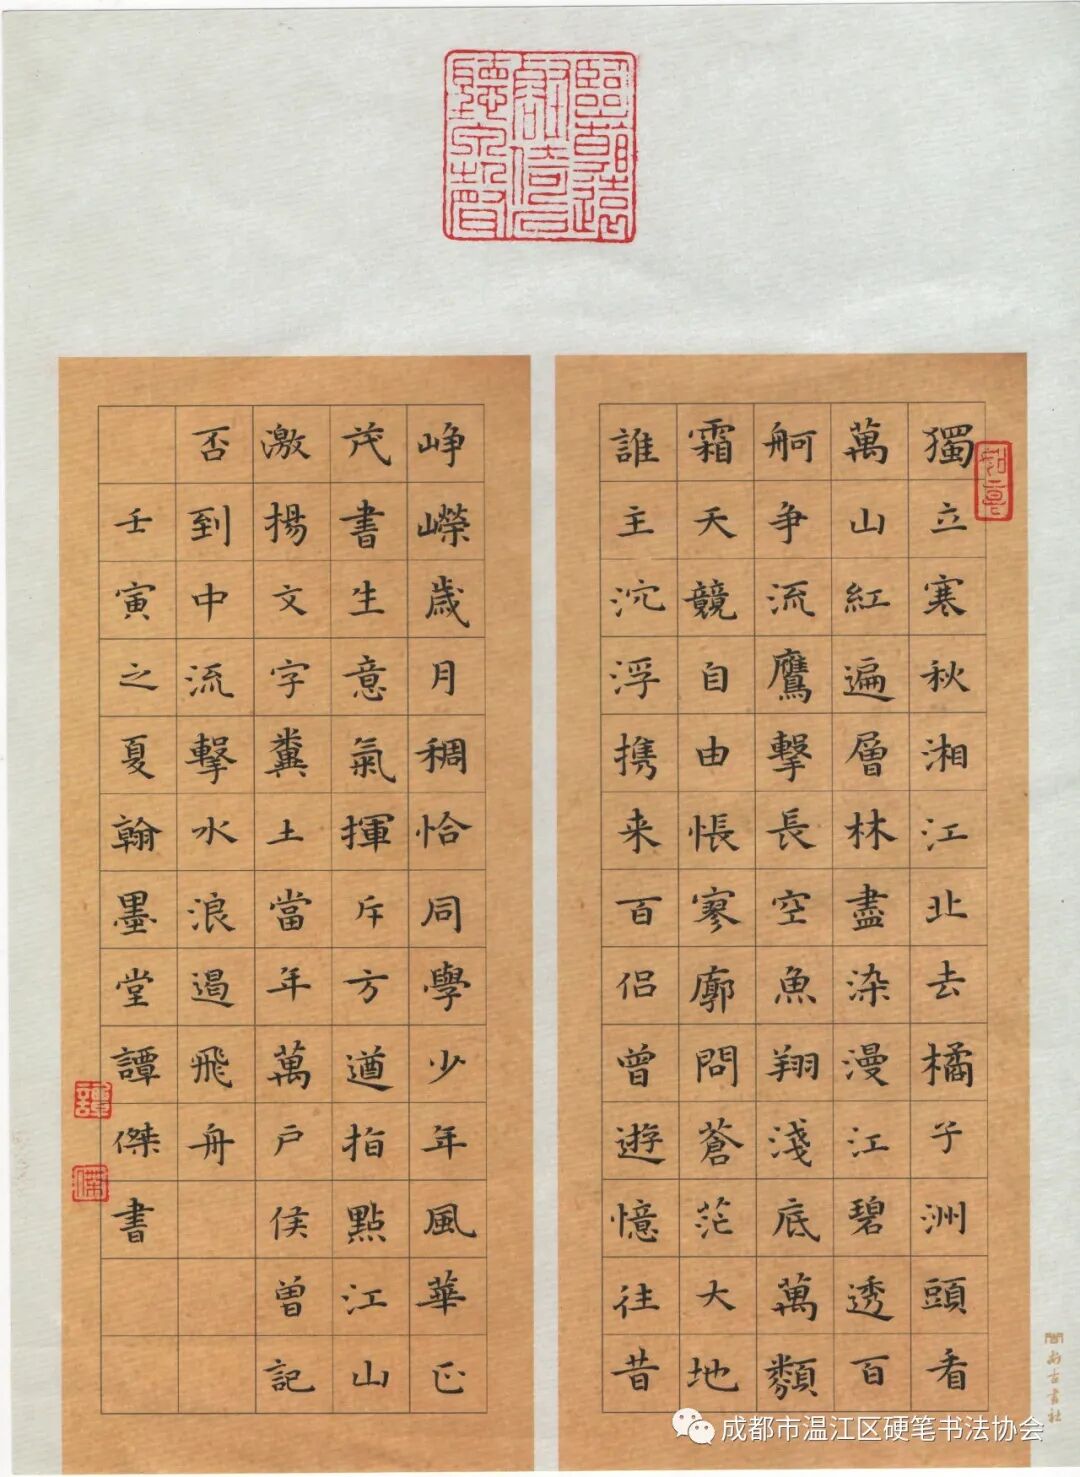 獨立寒秋湘江北去橘子洲頭看
萬山紅遍層林盡染漫江碧透百
舸争流鷹擊長空魚翔淺底萬類
霜天競自由悵寥廓問蒼茫大地
誰主沉浮携来百侣曾遊憶往昔
峥嶸歲月稠恰同學少年風華正
茂書生意氣揮斥方遒指點江山
激揚文字糞土當年萬户侯曾記
否到中流擊水浪遏飛舟
壬寅之夏翰墨堂譚傑書
譚
傑
成都市温江区硬笔书法协会